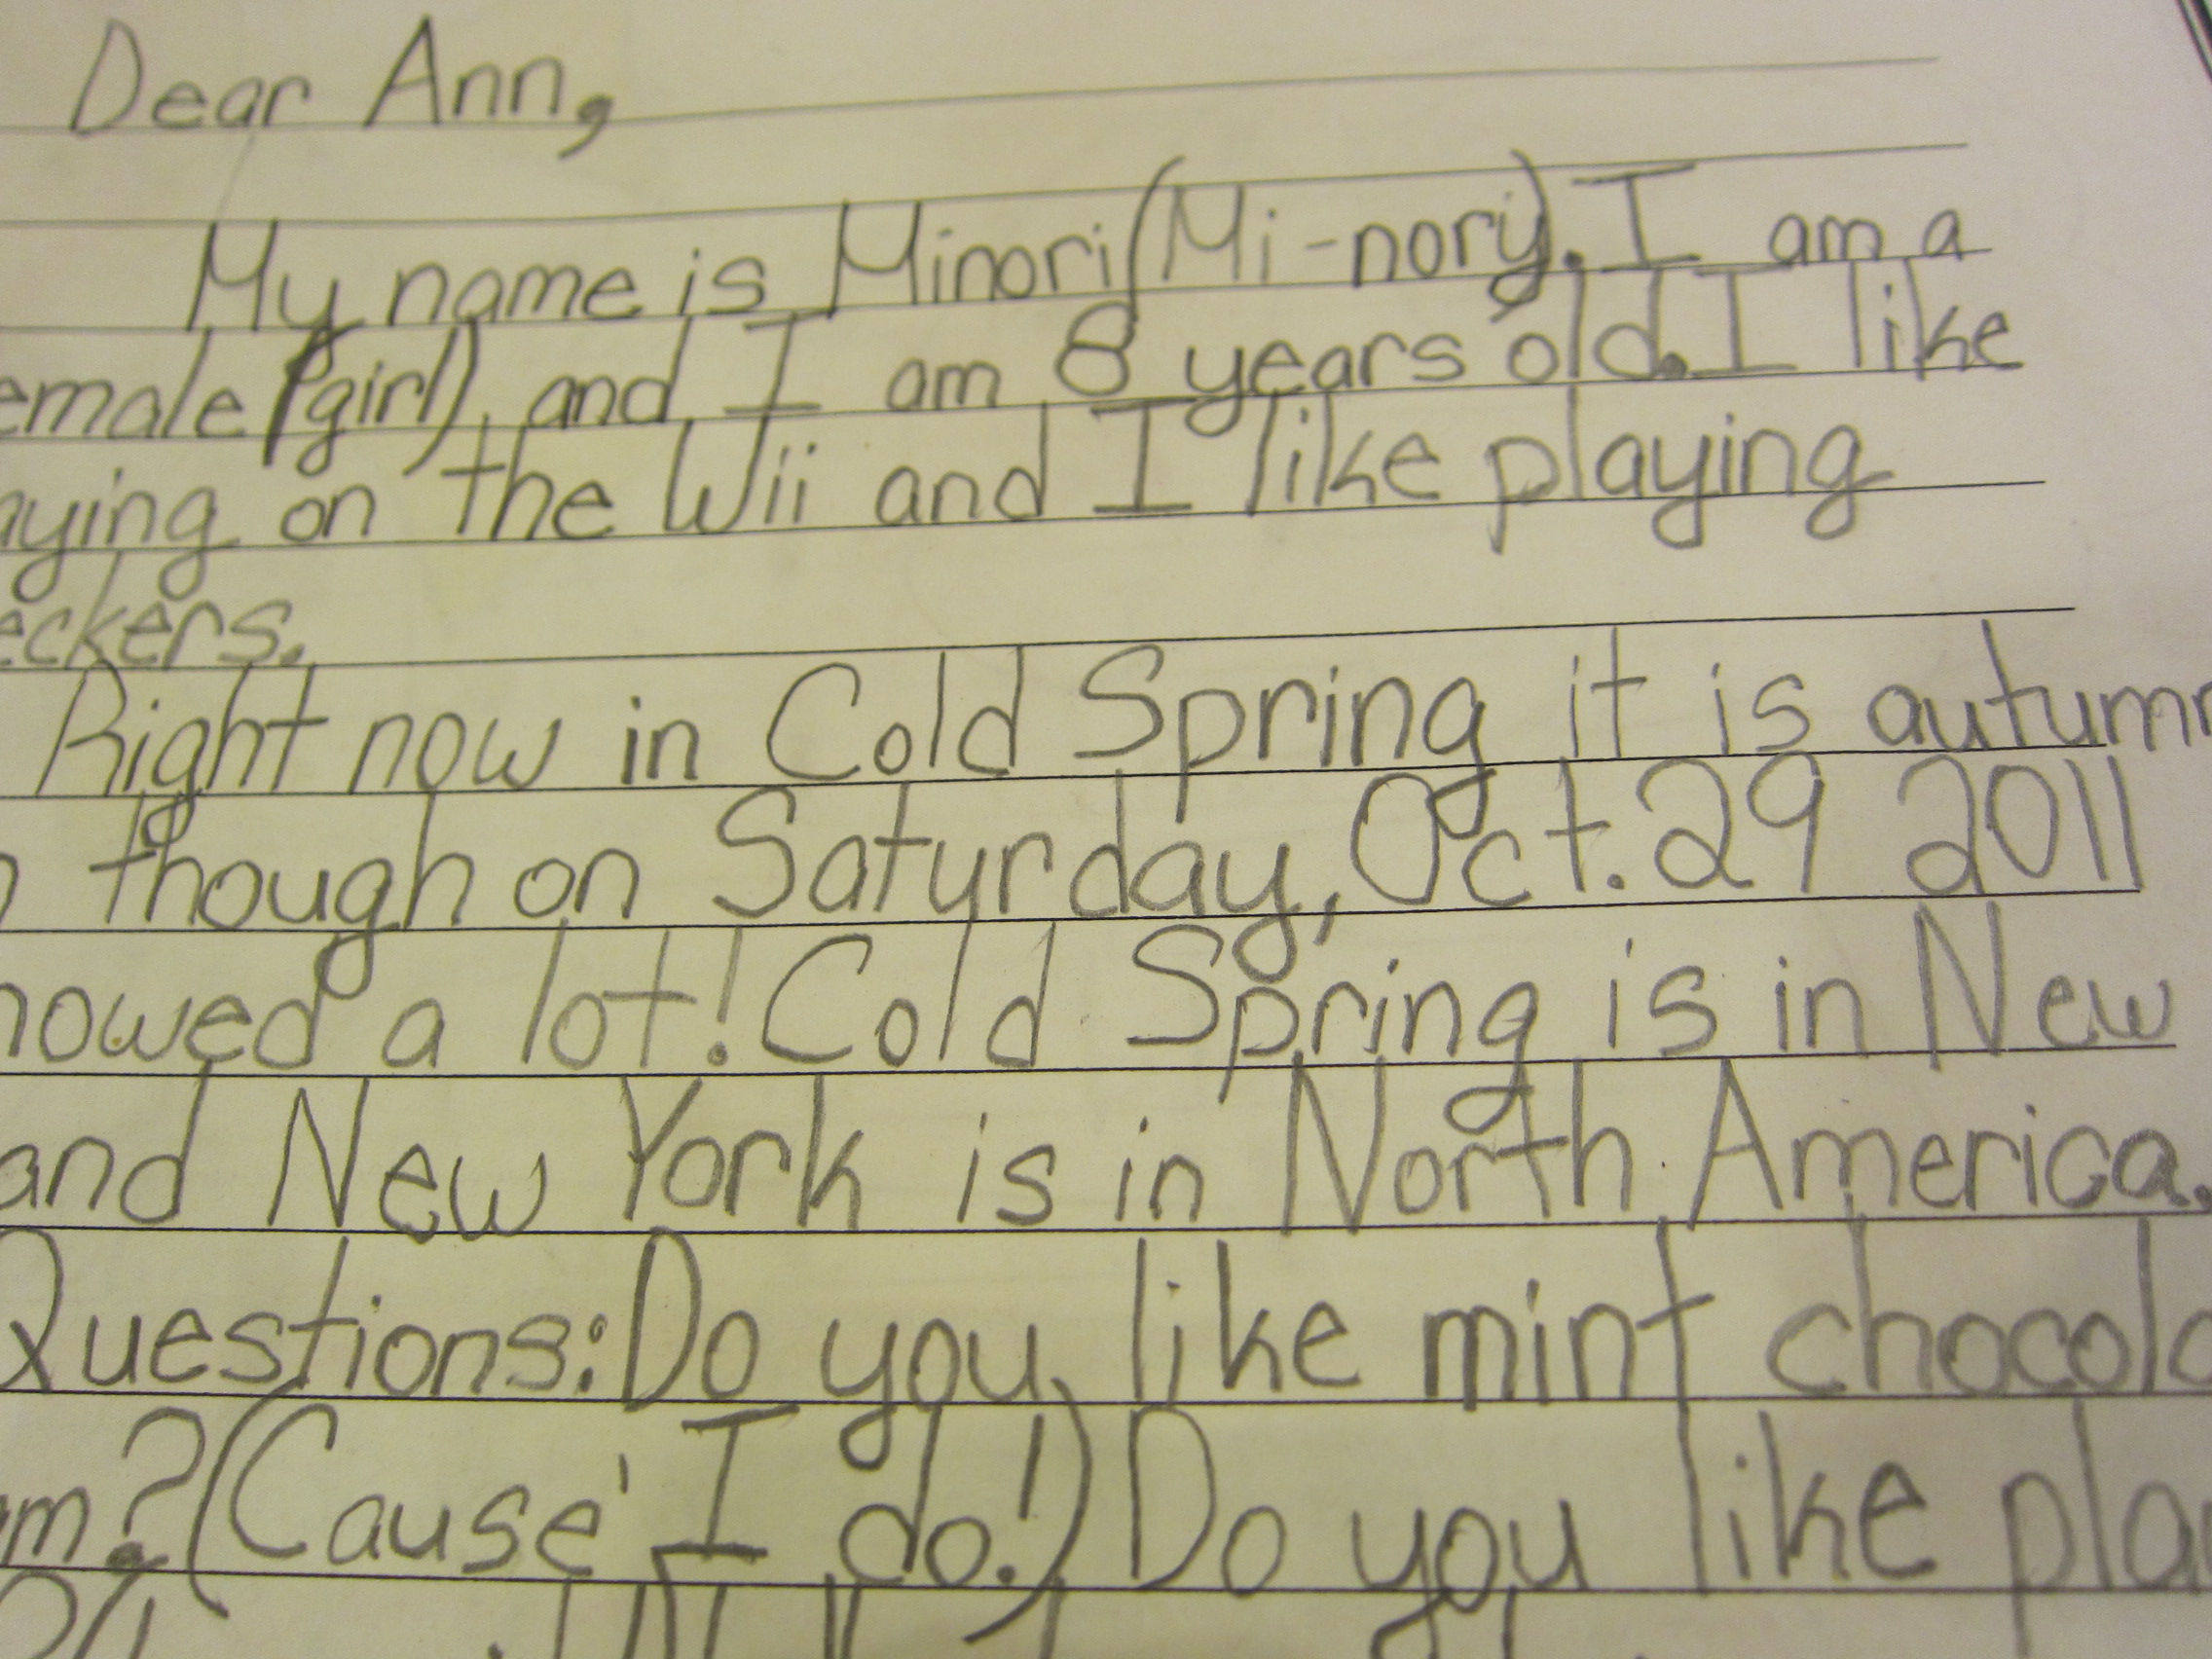 Dear Ann,
My name is Minori (Mi-nory). I am a
emale (girl) and I am 8 years old. I like
aying on the Wii and I like playing
eckers.
Right now in Cold Spring it is autumn
though on Saturday, Oct. 29 2011
nowed a lot! Cold Spring is in New
and New York is in North America.
Questions: Do you like mint chocola
m? (Cause' I do!) Do you like pla